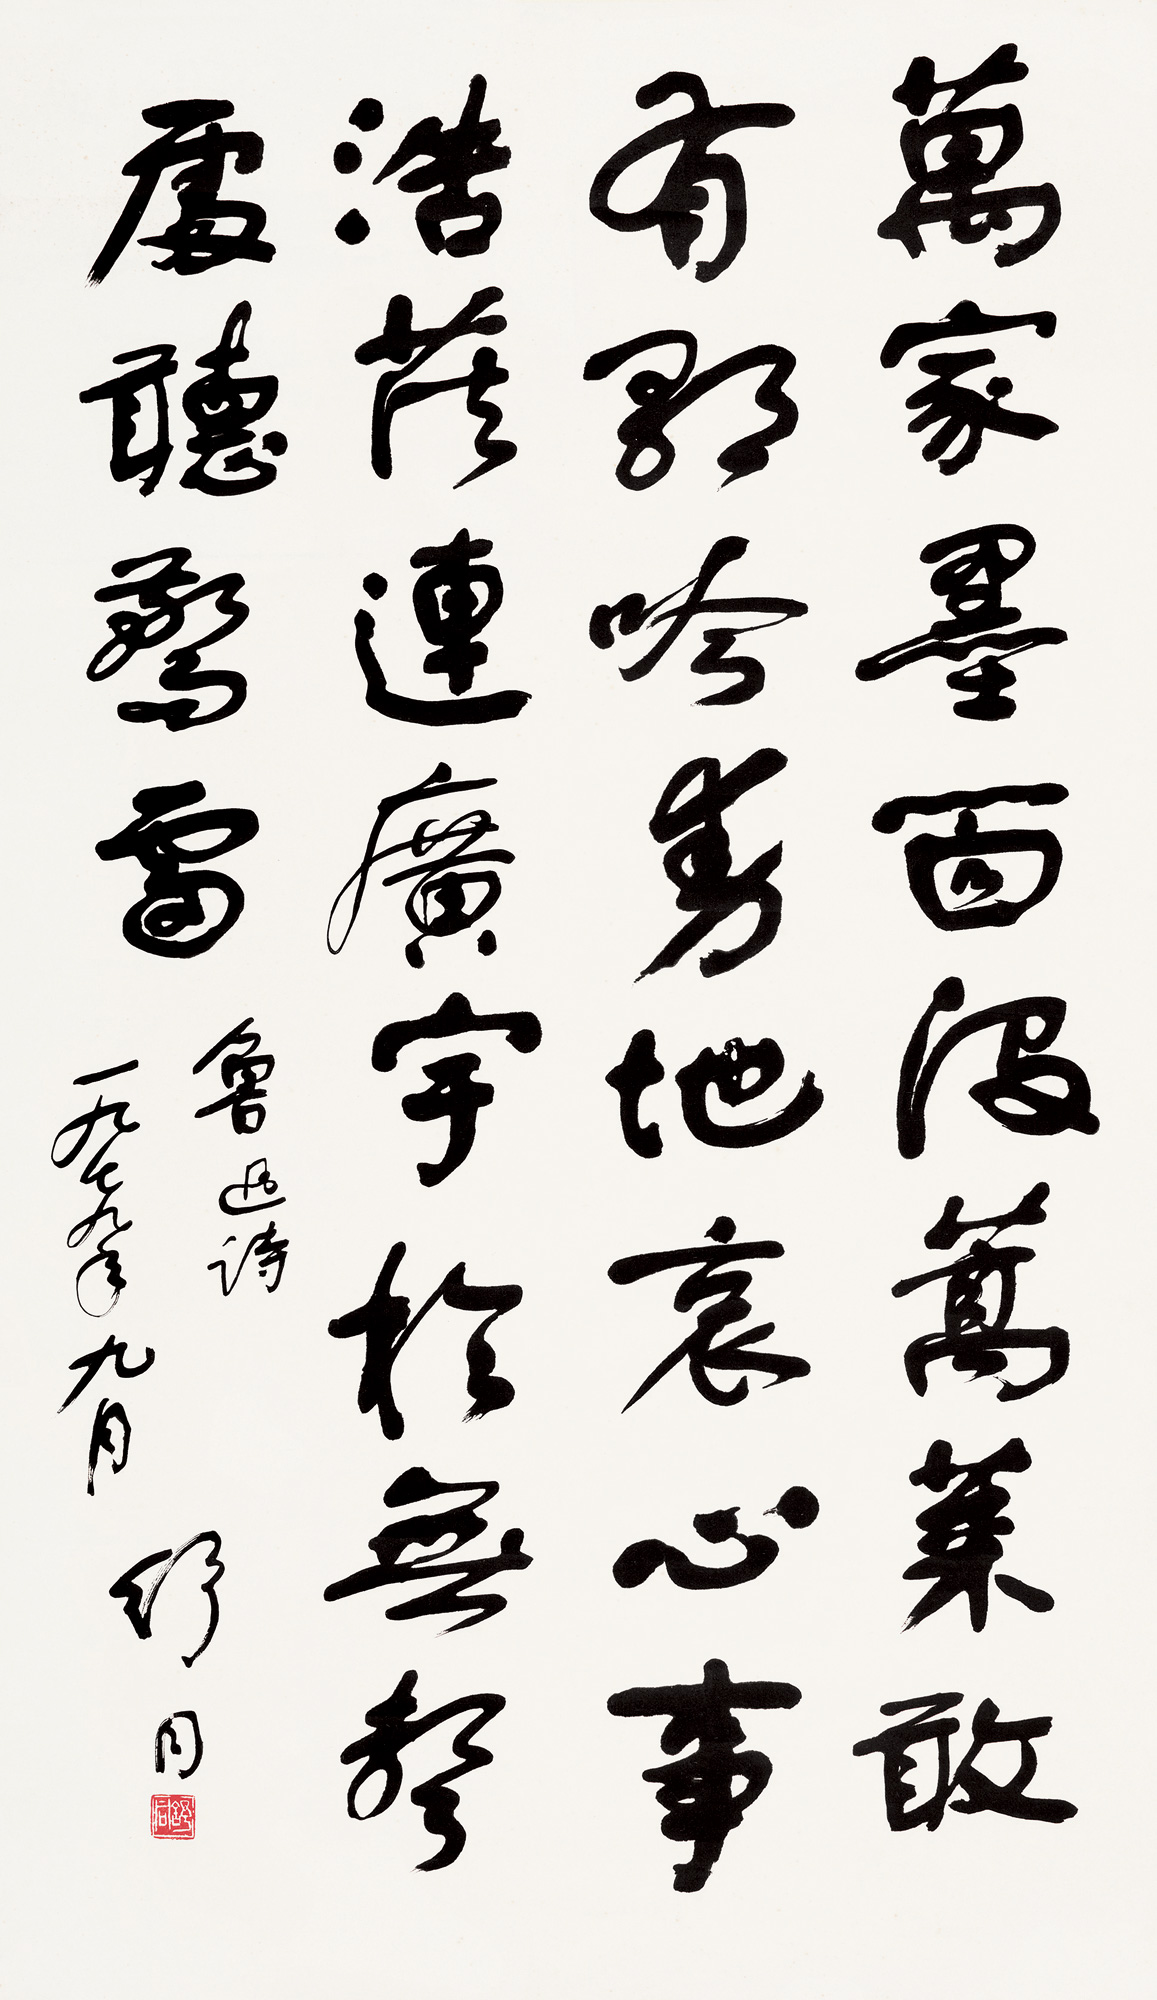 萬家墨面沒蒿萊敢
有歌吟動地哀心事
浩茫連廣宇於無聲
處聽驚雷
魯迅詩
一九七九年九月
舒同
舒同